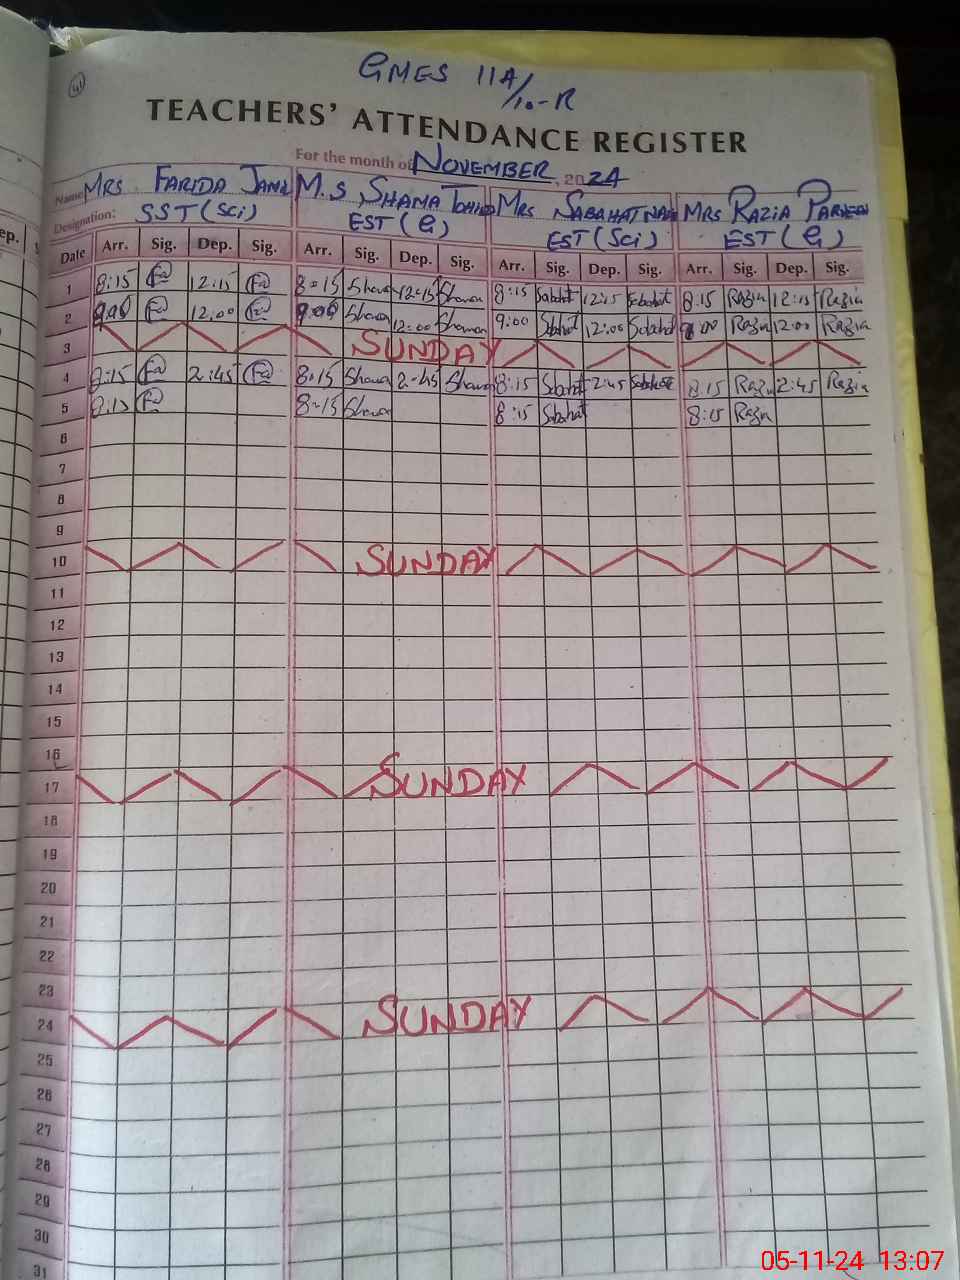 41
GMES 11A/10-R
TEACHERS' ATTENDANCE REGISTER
For the month of NOVEMBER, 2024
Name MRS FARIDA JAMIL M.S SHAMA TOHID MRS SABAHAT NAZ MRS RAZIA PARVEEN
Designation: SST (Sci) EST (G) EST (Sci) EST (G)
Date Arr. Sig. Dep. Sig. Arr. Sig. Dep. Sig. Arr. Sig. Dep. Sig. Arr. Sig. Dep. Sig.
1 8:15 Fa 12:15 Fa 8-15 Shama 12-15 Shama 8:15 Sabahat 12:15 Sabahat 8:15 Razia 12:15 Razia
2 9:00 Fa 12:00 Fa 9:00 Shama 12:00 Shama 9:00 Sabahat 12:00 Sabahat 9:00 Razia 12:00 Razia
3 SUNDAY
4 8:15 Fa 2:45 Fa 8:15 Shama 2-45 Shama 8:15 Sabahat 2:45 Sabahat 8:15 Razia 2:45 Razia
5 8:15 Fa 8-15 Shama 8:15 Sabahat 8:15 Razia
6
7
8
9
10 SUNDAY
11
12
13
14
15
16
17 SUNDAY
18
19
20
21
22
23
24 SUNDAY
25
26
27
28
29
30
31
ep.
05-11-24 13:07